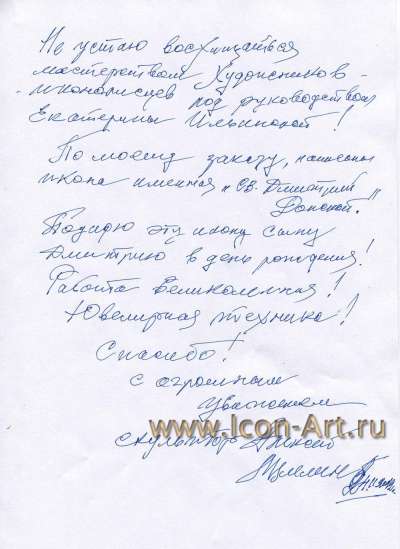 Не устаю восхищаться
мастерством Художников-
-иконописцев под руководством
Екатерины Ильинской!
По моему заказу, написана
икона именная „Св. Дмитрий
Донской."
Подарю эту икону сыну
Дмитрию в день рождения!
Работа Великолепная!
Ювелирная техника!
Спасибо!
с огромным
уважением
www.Icon-Art.ru
скульптор Алексей